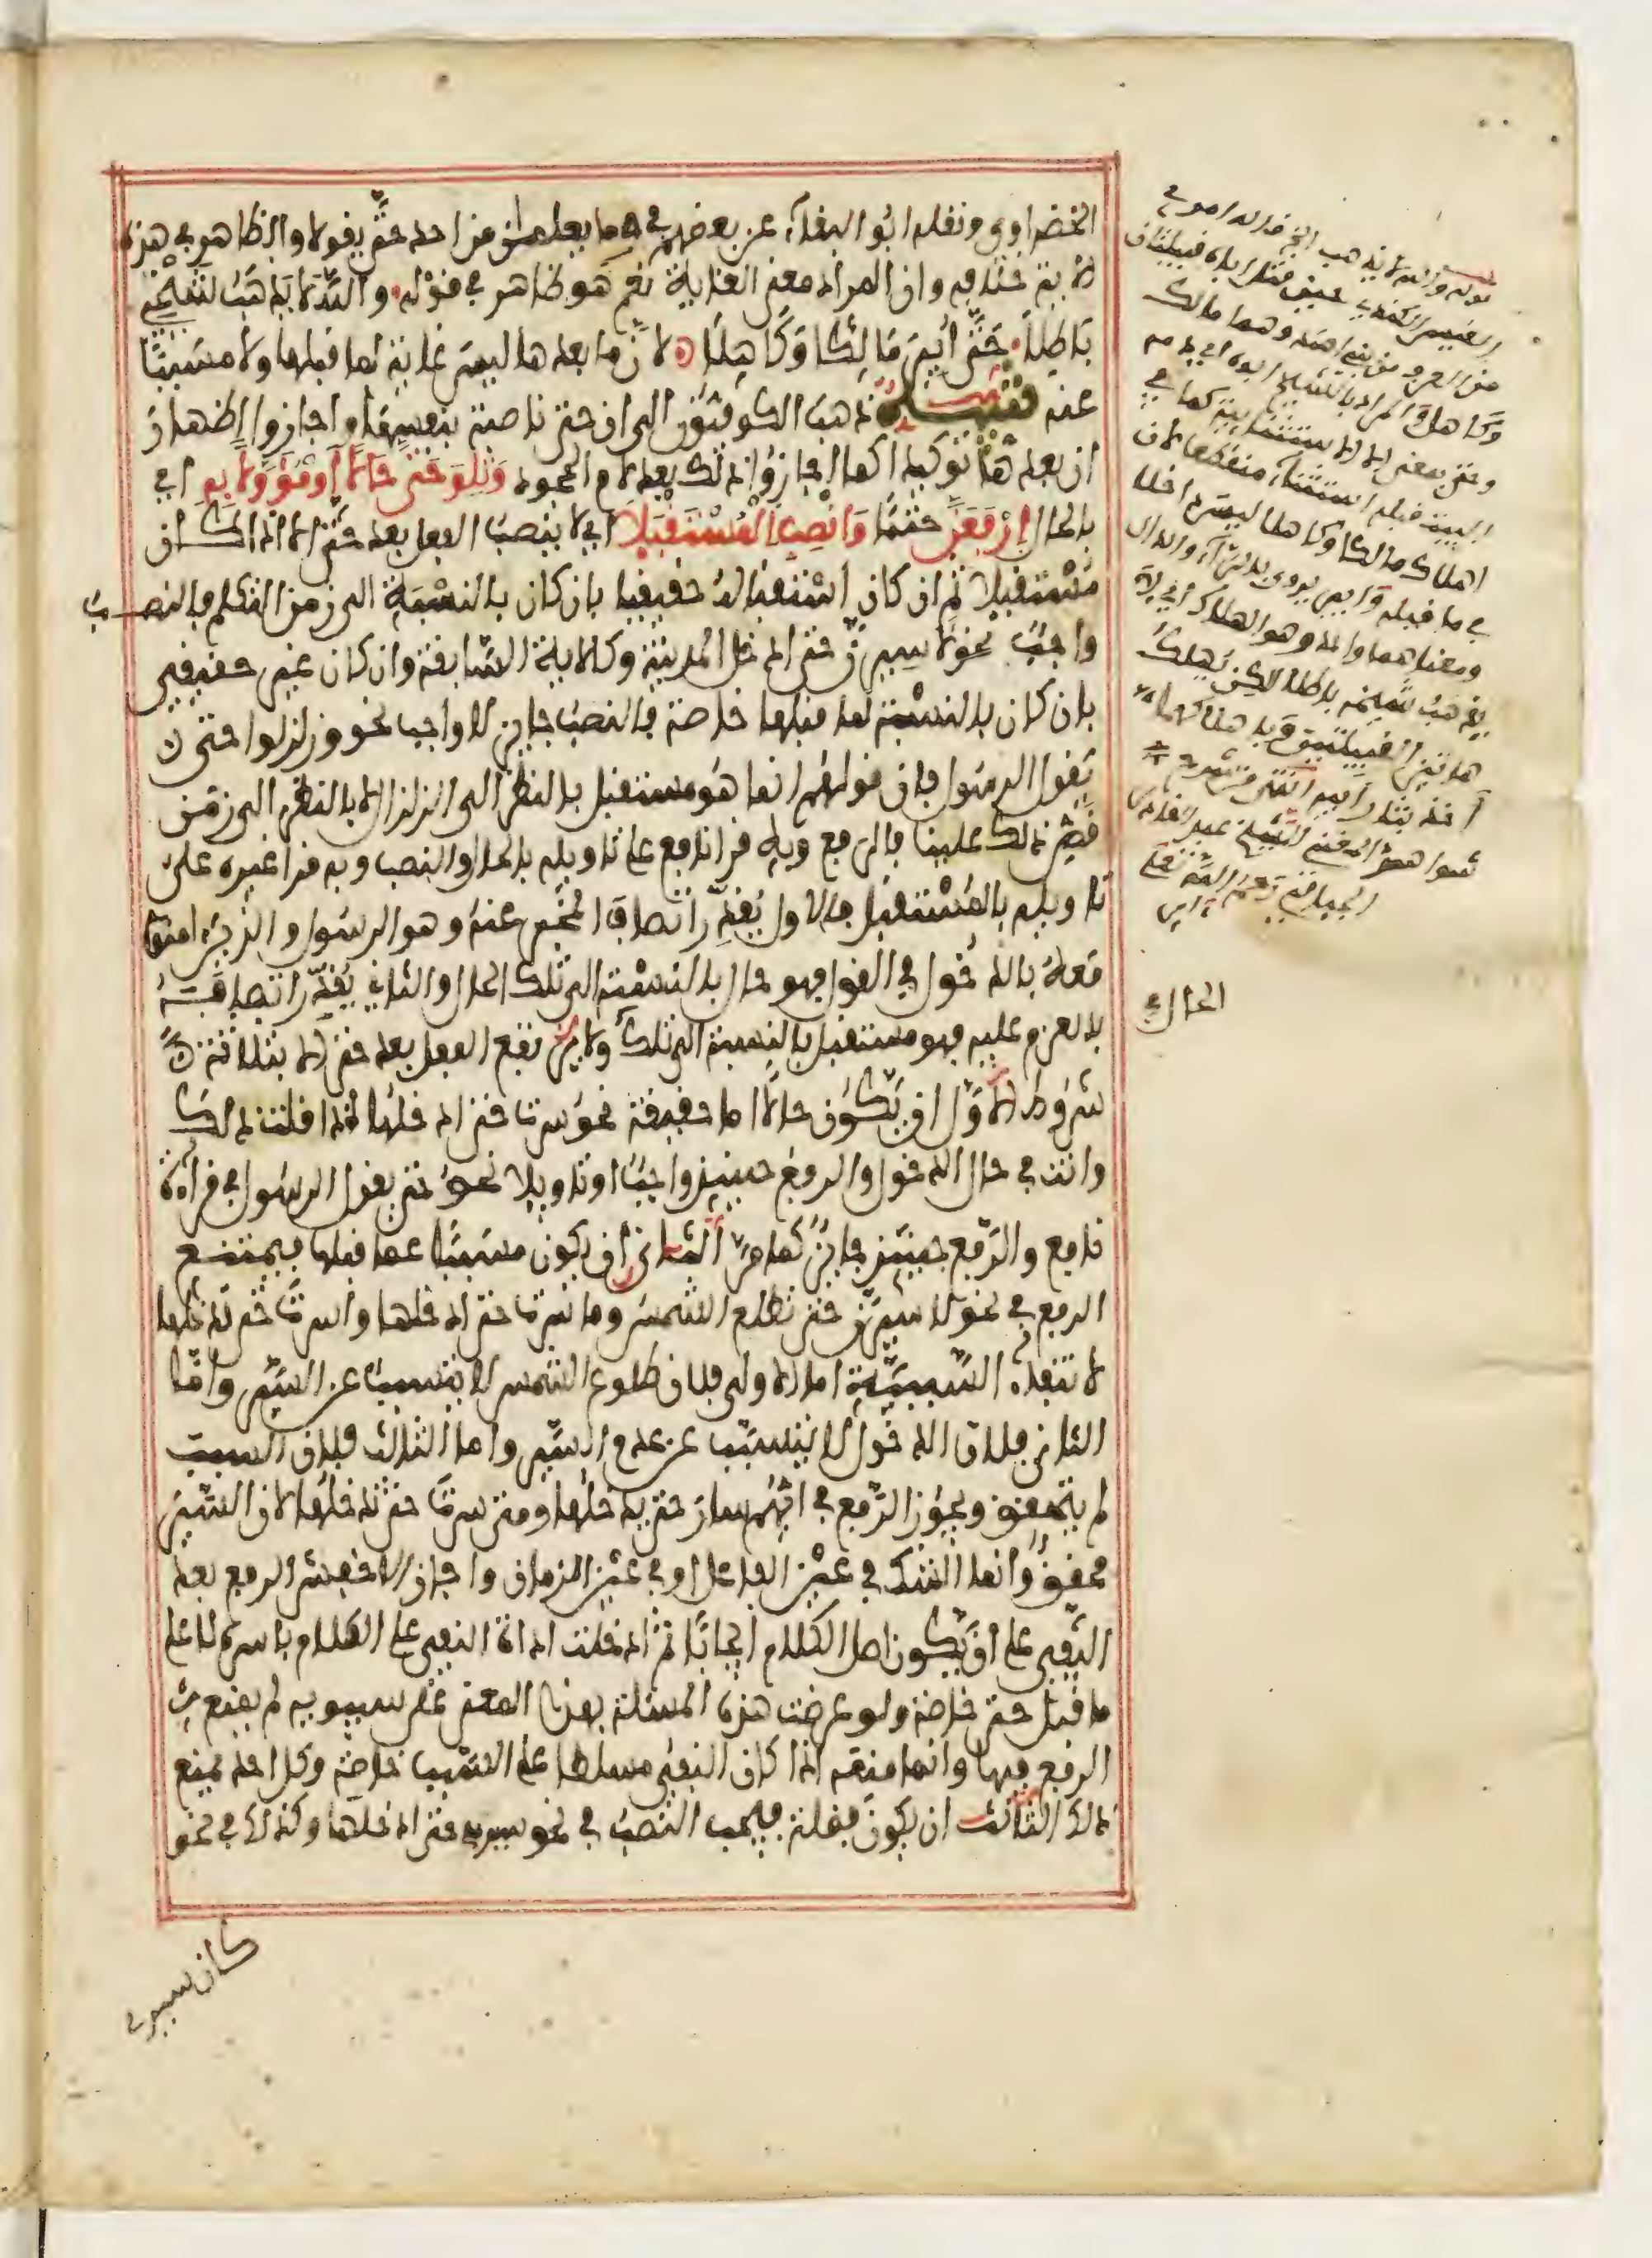 الخضراوي ونقله ابو البقاء عن بعضهم في وما يعلمان من احد حتى يقولا والظاهر في هذه
الاية خلافه وان المراد معنى الغاية نعم هو ظاهر في قوله والله لا يذهب شيخي
باطلا حتى ابير مالكا وكاهلا لان ما بعدها ليس غاية لما قبلها ولا مسببا
عنه تنبيه ذهب الكوفيون الى ان حتى ناصبة بنفسها واجازوا اظهار
ان بعدها توكيدا كما اجازوا ذلك بعد لام الجحود وتلو حتى حالا او مؤولا به اي
بالحال ارفعن حتما وانصب المستقبلا اي لا ينصب الفعل بعد حتى الا اذا كان
مستقبلا ثم ان كان استقباله حقيقيا بان كان بالنسبة الى زمن التكلم فالنصب
واجب نحو لاسيرن حتى ادخل المدينة وكالاية السابقة وان كان غير حقيقي
بان كان بالنسبة لما قبلها خاصة فالنصب جايز لا واجب نحو وزلزلوا حتى
يقول الرسول فان قولهم انما هو مستقبل بالنظر الى الزلزال لا بالنظر الى زمن
قص ذلك علينا فالرفع وبه قرا نافع على تاويله بالحال والنصب وبه قرا غيره على
تاويله بالمستقبل فالاول يقدر اتصاف المخبر عنه وهو الرسول والذين امنوا
معه بالدخول في القول فهو حال بالنسبة الى تلك الحال والثاني يقدر اتصافه
بالعزم عليه فهو مستقبل بالنسبة الى تلك ولا يرتفع الفعل بعد حتى الا بثلاثة
شروط الاول ان يكون حالا اما حقيقة نحو سرت حتى ادخلها اذا قلت ذلك
وانت في حال الدخول والرفع حينيذ واجب او تاويلا نحو حتى يقول الرسول في قراءة
نافع والرفع حينيذ جايز كما مر الثاني ان يكون مسببا عما قبلها فيمتنع
الرفع في نحو لاسيرن حتى تطلع الشمس وما سرت حتى ادخلها واسرت حتى تدخلها
لانتفاء السببية اما الاولى فلان طلوع الشمس لا يتسبب عن السير واما
الثاني فلان الدخول لا يتسبب عن عدم السير واما الثالث فلان السبب
لم يتحقق ويجوز الرفع في ايهم سار حتى يدخلها ومتى سرت حتى تدخلها لان السير
محقق وانما الشك في عين الفاعل او في عين الزمان واجاز الاخفش الرفع بعد
النفي على ان يكون اصل الكلام ايجابا ثم ادخلت اداة النفي على الكلام باسره لا على
ما قبل حتى خاصة ولو عرضت هذه المسئلة بهذا المعنى على سيبويه لم يمنع
الرفع فيها وانما منعه اذا كان النفي مسلطا على السبب خاصة وكل احد يمنع
ذلك الثالث ان يكون فضلة فيجب النصب في نحو سيري حتى ادخلها وكذلك في نحو
كان سيري
قوله والله لا يذهب الخ قاله امرؤ
القيس الكندي حين قتل ابوه قبيلتان
من بني اسد وهما مالك
وكاهل والمراد بالشيخ ابوه
وحتى بمعنى الا الاستثنائية كما في
البيت قبله استثناء منقطعا لان
اهلاك مالكا وكاهلا ليس داخلا
في ما قبله وابير
ومعناهما واحد وهو الهلاك
يذهب شيخي باطلا لكن يهلك
هاتين القبيلتين
اخذ بثار ابيه انتهى من شرح
شواهد الشيخ عبد القادر
الحال